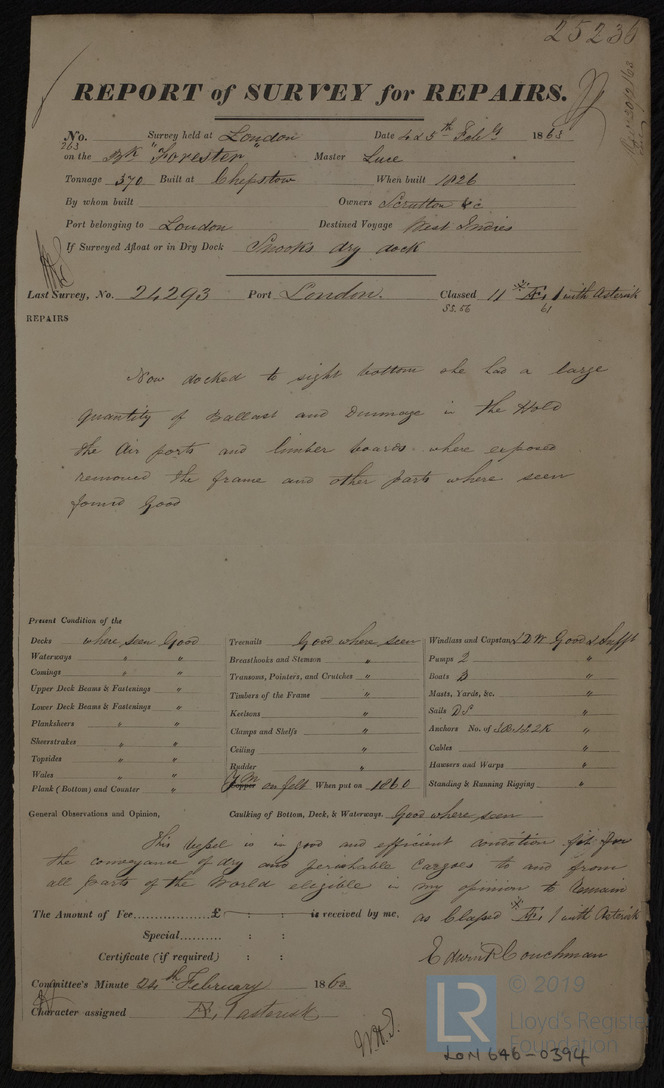 25236
REPORT of SURVEY for REPAIRS.
No. 263 Survey held at London Date 4 & 5th Feb 1863
on the Bk "Forester" Master Luce
Tonnage 370 Built at Chepstow When built 1826
By whom built Owners Scrutton & c
Port belonging to London Destined Voyage West Indies
If Surveyed Afloat or in Dry Dock Snooks dry dock
Last Survey, No. 24293 Port London. Classed 11 Æ 1 with Asterisk
SS.56 61
REPAIRS
Now docked to sight bottom she had a large
quantity of Ballast and Dunnage in the Hold
the Air ports and limber boards where exposed
removed the frame and other parts where seen
found Good
Present Condition of the
Decks where seen Good
Waterways " "
Comings " "
Upper Deck Beams & Fastenings " "
Lower Deck Beams & Fastenings " "
Planksheers " "
Sheerstrakes " "
Topsides " "
Wales " "
Plank (Bottom) and Counter "
Treenails Good where seen
Breasthooks and Stemson "
Transoms, Pointers, and Crutches "
Timbers of the Frame "
Keelsons "
Clamps and Shelfs "
Ceiling "
Rudder "
Copper Y M on felt When put on 1860
Windlass and Capstan Good & Sufft
Pumps 2 "
Boats 3 "
Masts, Yards, &c. "
Sails D S "
Anchors No. of 3B.1S.2K "
Cables "
Hawsers and Warps "
Standing & Running Rigging "
General Observations and Opinion, Caulking of Bottom, Deck, & Waterways. Good where seen
This Vessel is in good and efficient condition fit for
the conveyance of dry and perishable Cargoes to and from
all parts of the World eligible in my opinion to remain
The Amount of Fee...............£ : : is received by me, as Classed Æ 1 with Asterisk
Special.......... : :
Certificate (if required) : : Edwin P Couchman
Committee's Minute 24th February 1863
Character assigned Æ 1 asterisk
W.H.T.
LR
© 2019
Lloyd's Register
Foundation
LON 646-0394